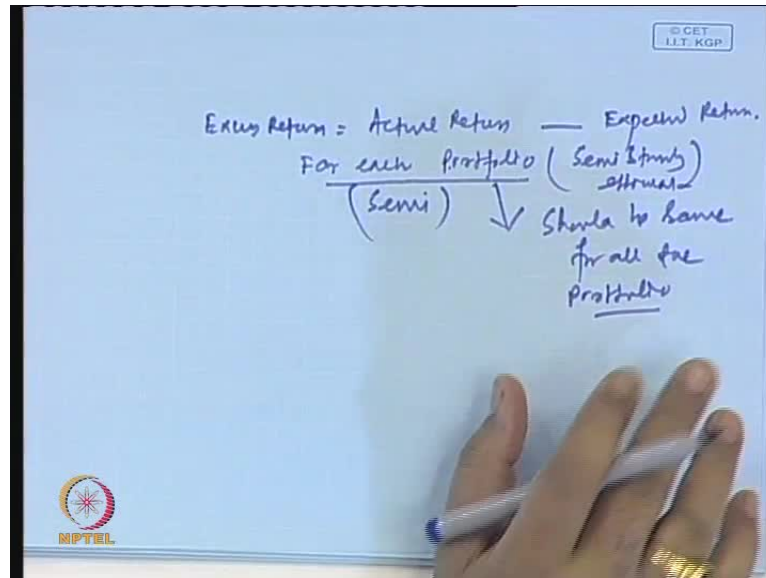 © CET
I.I.T. KGP
Excess Return = Actual Return — Expected Return.
For each Portfolio (Semi Strong
(Semi) Should be same
for all the
Portfolio
NPTEL